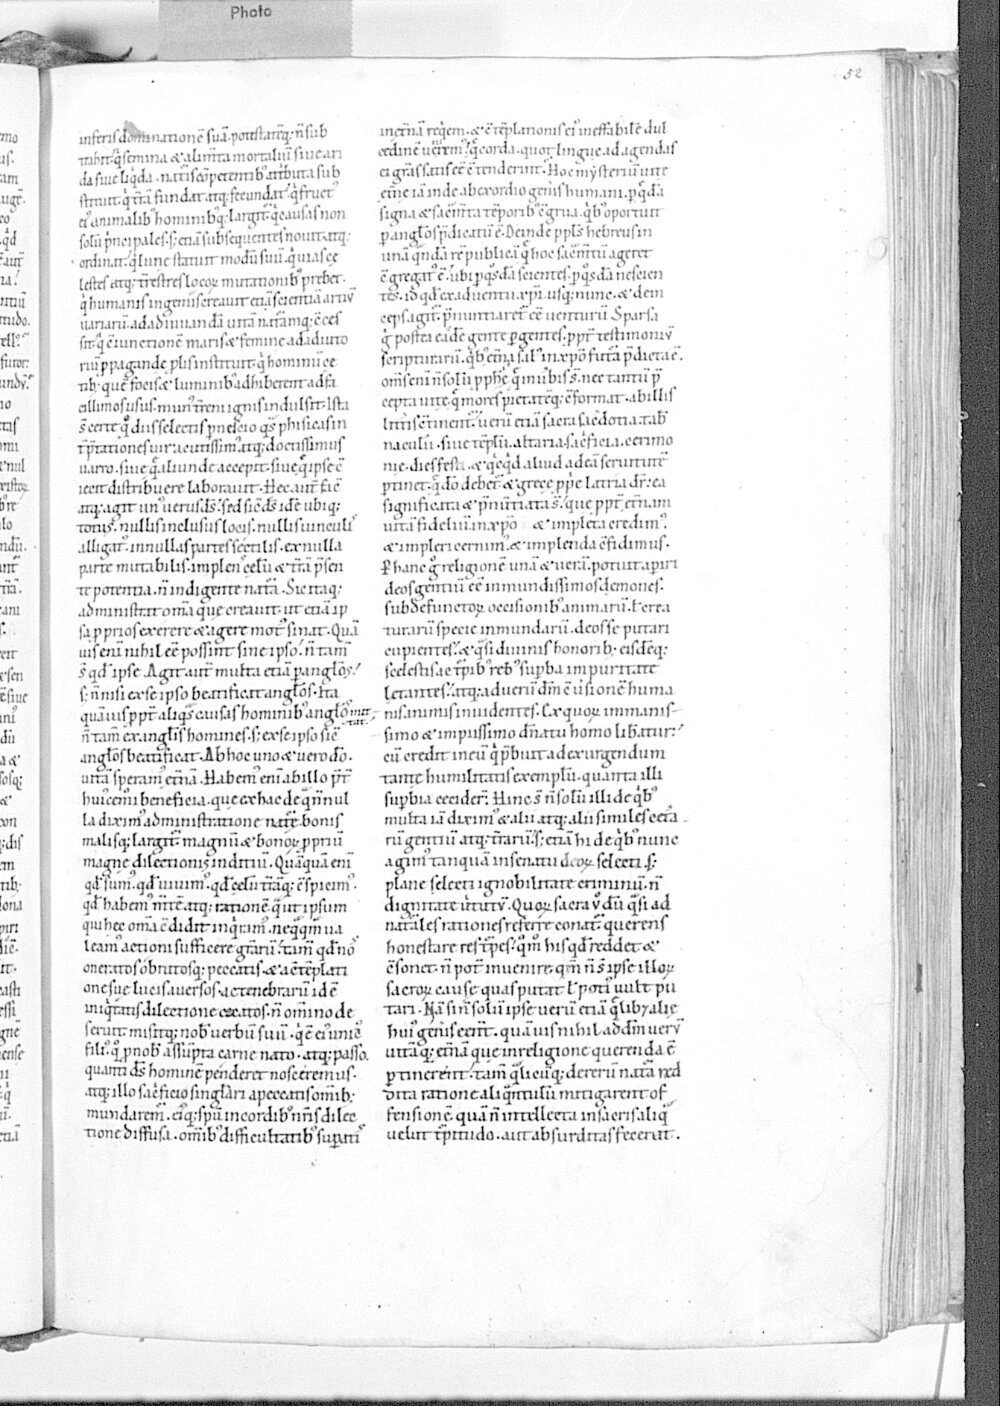 Photo
52
inferis dominationē suā potestatēq; ñ sub
trahit. q̊ semina & alim̄ta mortaliū siue ari
da siue liq̇da. natis cōpetentib' att̃buta sub
stituit. q̇ t̃rā fundat atq; fecundat. q̇ fruct'
ei' animalib' hominibq; largit̃. q̇ causas non
solū p̃ncipales. s; etiā subsequentes nouit atq;
ordinat. q̇ lune statuit modū suū. q̇ uias ce
lestes atq; t̃restres locoꝝ mutationib' p̃bet.
q̇ humanis ingeniis creauit etiā scientiā artiū
uariarū. ad adiuuandā uitā natāmq; . q̇ ces
sit. q̇ ciunctionē maris & femine ad adiuto
riū ꝓpagande ꝓlis instituit. q̇ hominū ce
tib; quē focis & luminib' adhiberent ad fa
cillimos usus. mun' t̃reni ignis indulsit. Ista
s̄ certe q̄ diis selectis ꝑ nescio q̄s phisicas in
t̃ptationes uir acutissim' atq; doctissimus
uarro. siue q̄ aliunde accepit. siue q̄ ipse c̄
iecit distribuere laborauit. Hec aut̄ fac̄
atq; agit un' uerus ds̄. sed sic ds̄ idē ubiq;
totus. nullis inclusus locis. nullis uinculis
alligat'. in nullas partes sectilis. ex nulla
parte mutabilis. implens celū & t̃rā p̃sen
te potentia. ñ indigente natā. Sic itaq;
administrat om̃a que creauit. ut etiā ip
sa ꝓprios exerere & agere mot' sinat. Quā
uis eni nihil eē possint sine ipso. ñ tam̄
s̄ qd̄ ipse. Agit aut̄ multa etiā ꝑ angłos.
s; ñ nisi ex se ipso beatificat angłos. Ita
quāuis ꝓpt̃ aliq̄s causas hominib' angłos mit
tat.
ñ tam̄ ex angłis homines. s; ex se ipso sic̄
angłos beatificat. Ab hoc uno & uero dō.
uitā speram' et̃nā. Habem' eni ab illo p̃t̃
hui'cemi beneficia. que ex hac de q̄ ñnul
la dixim' administratione nat̃e. bonis
malisq; largit̃. magnū & bonoꝝ ꝓpriū
magne dilectionis indiciū. Quāquā eni
qd̄ sum'. qd̄ uiuim'. qd̄ celū t̃rāq; c̄spicim'.
qd̄ habem' m̄tē atq; rationē q̄ ut ipsum
qui hec om̃a c̄didit inq̇ram'. neq̄q̄m ua
leam' actioni sufficere gr̃arū. tam̄ qd̄ nos
oneratos obrutosq; peccatis & a c̄tēplati
one sue lucis auersos. ac tenebrarū id ē
iniq̇tatis dilectione cecatos. ñ om̃ino de
seruit. misitq; nob' uerbū suū. q̇ ē ei' unic'
fili'. q̄ ꝓ nob' assūpta carne nato. atq; passo.
quanti ds̄ hominē penderet nosceremus.
atq; illo sac̃ficio singłari a peccatis om̃ib;
mundarem'. ei'q; sp̄ū in cordib' nr̃is dilec
tione diffusa. om̃ib' difficultatib' supatis
in et̃nā req̇em. & c̄tēplationis ei' ineffabilē dul
cedinē uenirem'. q̄ corda. quot lingue ad agendas
ei gr̃as satis eē c̄tenderint. Hoc mysteriū uite
et̃ne iā inde ab exordio gen̄is humani. ꝑ q̄dā
signa & sac̃m̄ta tēporib' c̄grua. q̇b' oportuit
ꝑ angłos p̃dicatū ē. Deinde ppl̄s hebreus in
unā q̄ndā rē publicā. q̄ hoc sac̃m̄tū ageret
c̄gregat' ē. ubi ꝑ q̄sdā scientes. ꝑ q̄sdā nescien
tes. id qd̄ ex aduentu xp̄i usq; nunc & dein
ceps agit̃. p̃nuntiaret̃ eē uenturū. Sparsa
g° postea eadē gente ꝑ gentes. ꝓpt̃ testimoniū
scripturarū. q̇b' et̃na sal' in xp̄o futa p̃dicta ē.
Om̃s eni ñ solū ꝓphie q̄ in ūbis s̄. nec tantū p̄
cepta uite. q̄ mores pietatēq; c̄format. ab illis
litt̃is c̄tinent̃. uerū etiā sacra sac̃dotia. tab̃
naculū. siue tēplū. altaria. sac̃ficia. cerimo
nie. dies festi & q̇cq̇d aliud ad eā seruitutē
ꝑtinet. q̄ dō debet̃ & grece ꝓp̃e latria dr̃. ea
significata & p̃nūtiata s̄. que ꝓpt̃ et̃nam
uitā fideliū in xp̄o & impleta credim'.
& impleri cernim'. & implenda c̄fidimus.
ꝑ hanc g° religionē unā & uerā. potuit apiri
deos gentiū eē inmundissimos demones.
sub defunctoꝝ occisionib' animarū. ł crea
turarū specie inmundarū. deos se putari
cupientes. & q̄si diuinis honorib; eisdēq;
scelestis ac t̃pib' reb' supba impuritate
letantes. atq; ad uerū dm̄ c̄uersionē huma
nis animis inuidentes. Ex quoꝝ immanis
simo & impiissimo dñatu homo libat̃.
cū credit in eū q̇ p̃buit ad exurgendum
tante humilitatis exemplū. quanta illi
supbia ceciderūt. Hinc s̄ ñ solū illi de q̇b'
multa iā dixim' & alii atq; alii similes cet̃a
rū gentiū atq; t̃rarū. s; etiā hi de q̇b' nunc
agim' tanquā in senatu deoꝝ selecti. s;
plane selecti ignobilitate criminū. ñ
dignitate uirtutū. Quoꝝ sacra ů dū q̄si ad
nat̃ales rationes referre conat̃. querens
honestare res t̃pes. q̄m̄ his qd̄ reddet &
c̄sonet. ñ pot̃ inuenire. q̄m̄ ñ s̄ ipse illoꝝ
sacroꝝ cause quas putat ł poti' uult pu
tari. Nā si ñ solū ipse uerū etiā q̄libȝ alie
hui' gen̄is eēnt. quāuis nihil ad dm̄ uerū
uitāq; et̃nā que in religione querenda ē
ꝑtinerent. tam̄ q̄licūq; de rerū natā red
dita ratione aliq̄ntulū mitigarent of
fensionē. quā ñ intellecta in sacris aliq̄
uelut t̃pitudo. aut absurditas fecerat.